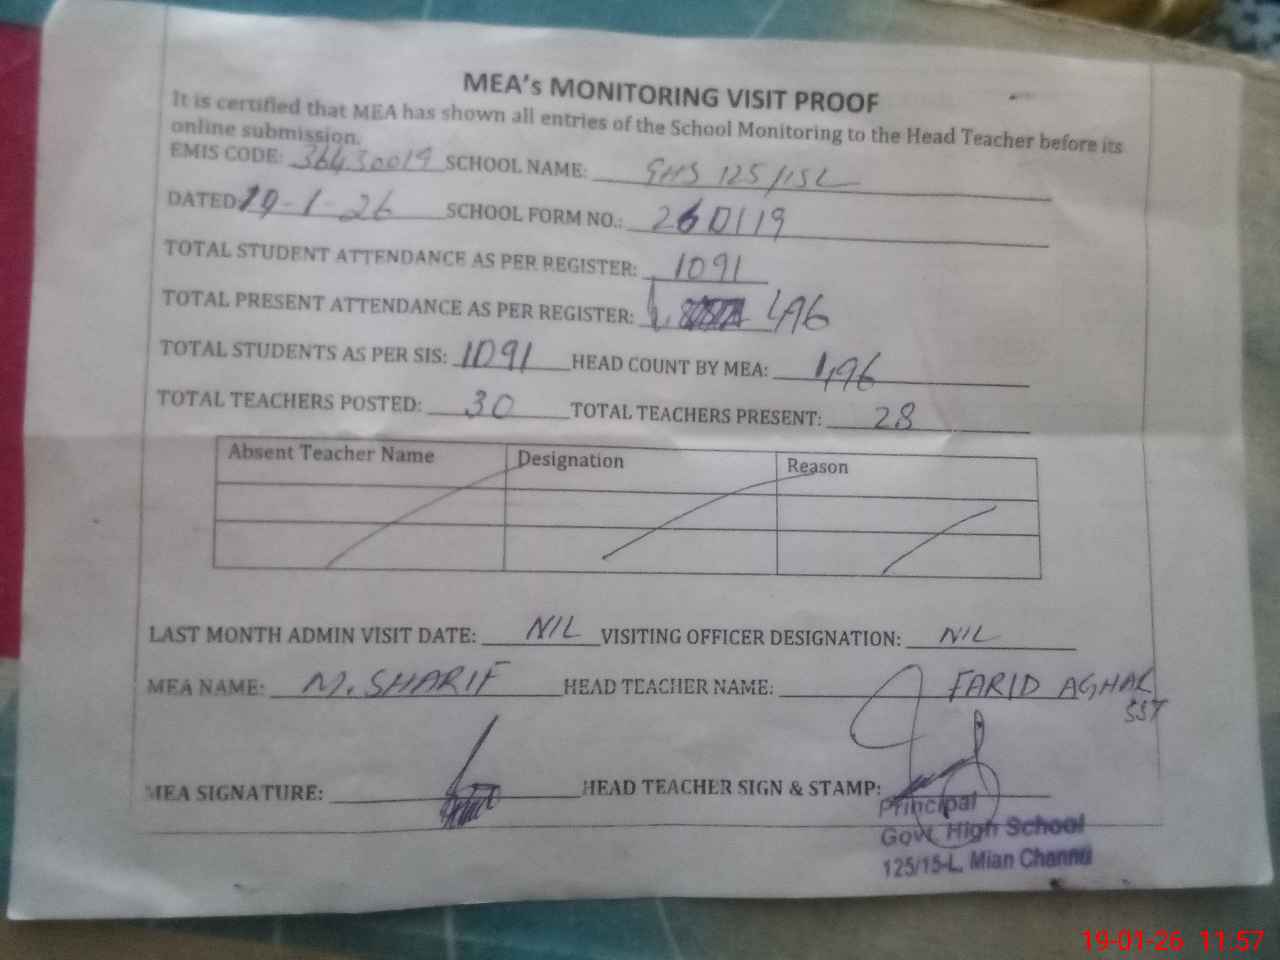 MEA's MONITORING VISIT PROOF
It is certified that MEA has shown all entries of the School Monitoring to the Head Teacher before its
online submission.
EMIS CODE: 36430019 SCHOOL NAME: GHS 125/15L
DATED 19-1-26 SCHOOL FORM NO.: 260119
TOTAL STUDENT ATTENDANCE AS PER REGISTER: 1091
TOTAL PRESENT ATTENDANCE AS PER REGISTER:
TOTAL STUDENTS AS PER SIS: 1091 HEAD COUNT BY MEA:
TOTAL TEACHERS POSTED: 30 TOTAL TEACHERS PRESENT: 28
Absent Teacher Name Designation Reason
LAST MONTH ADMIN VISIT DATE: NIL VISITING OFFICER DESIGNATION: NIL
MEA NAME: M. SHARIF HEAD TEACHER NAME: FARID
SST
MEA SIGNATURE: HEAD TEACHER SIGN & STAMP:
Principal
Govt. High School
125/15-L, Mian Channu
19-01-26 11:57